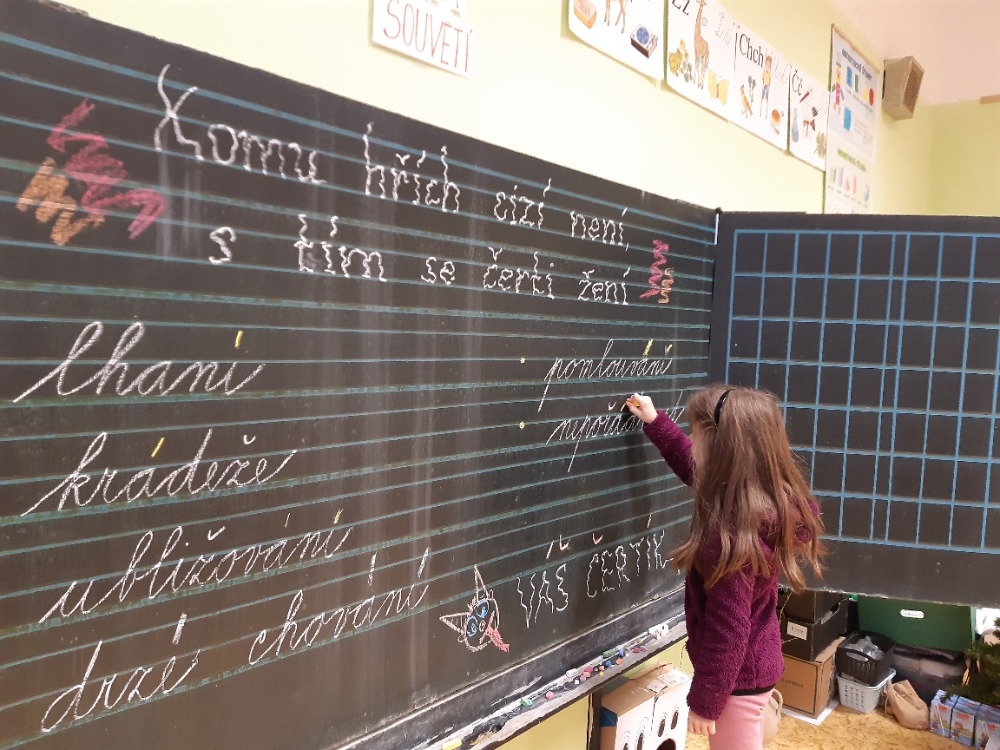 SOUVĚTÍ
Zz
Chch
Čč
Komu hřích cizí není,
s tím se čerti žení
lhaní
krádeže
ubližování
drzé chování
pomlouvání
VÁŠ ČERTÍK